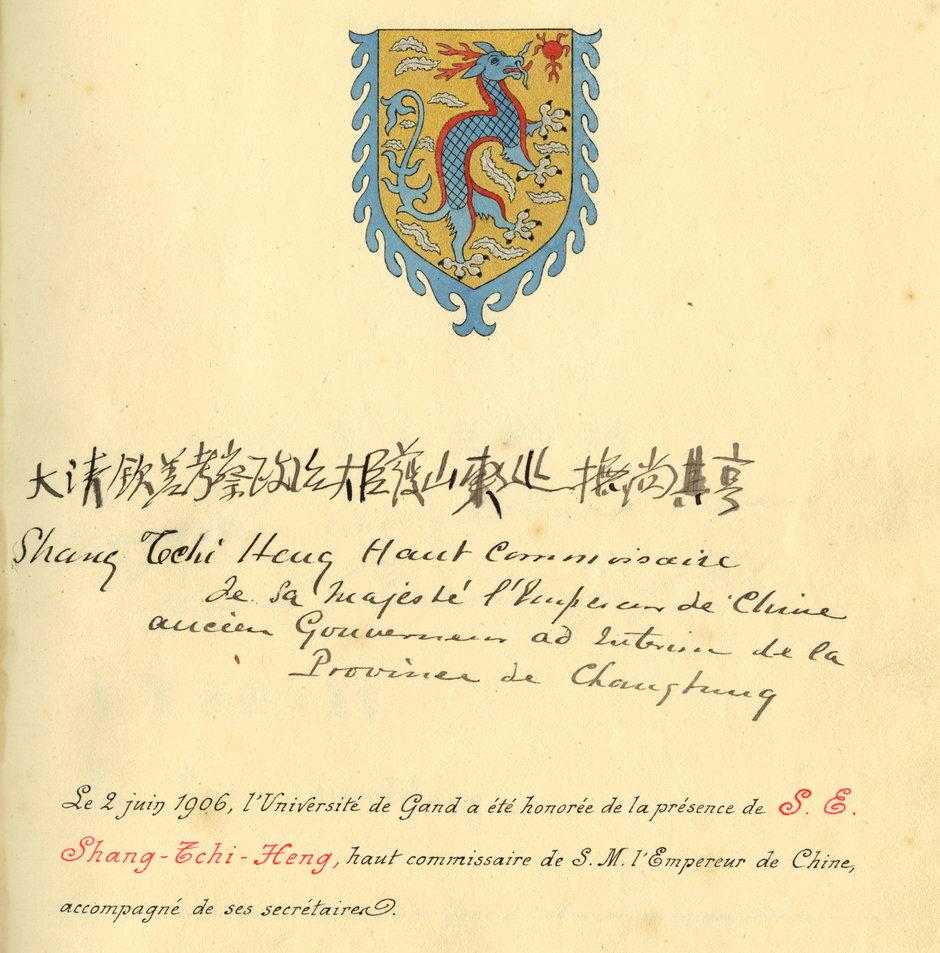 大清欽差考察政治大臣護山東巡撫尚其亨
Shang Tchi Heng Haut Commissaire
de Sa Majesté l'Empereur de Chine
ancien Gouverneur ad Interim de la
Province de Changtung
Le 2 juin 1906, l'Université de Gand a été honorée de la présence de S. E.
Shang-Tchi-Heng, haut commissaire de S. M. l'Empereur de Chine,
accompagné de ses secrétaires.